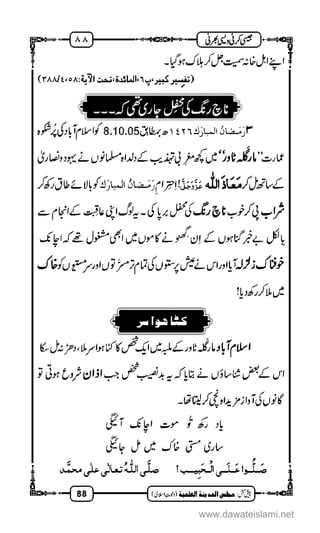 جیسی کرنی ویسی بھرنی
٨٨
اپنے اہلِ خانہ سمیت جل کر ہلاک ہو گیا۔
(تفسیر کبیر، پ٦، المائدۃ، تحت الآیۃ: ٥٨، ٤/٣٨٨)
ناچ رنگ کی محفل جاری تھی کہ۔۔۔
٣ رَمَضانُ المبارَک ١٤٢٦ھ بمطابق 8.10.05 کو اسلام آباد کی پُر شکوہ
عمارت ’’مارگلہ ٹاور‘‘ میں کچھ مغربی تہذیب کے دلدادہ مسلمانوں نے یہود و نصاریٰ
کے ساتھ مل کر مَعَاذَاللّٰہ عَزَّوَجَلَّ! احترامِ رَمَضانُ المبارَک کو بالائے طاق رکھ کر
شراب پی کر خوب ناچ رنگ کی محفل برپا کی۔ یہ لوگ اپنی عاقبت کے انجام سے
بالکل بے خبر گناہوں کے ان گھنونے کاموں میں ابھی مشغول تھے کہ اچانک
خوفناک زلزلہ آیا اور اس نے عیش پرستوں کی تمام تر سرمستیوں کو خاک
میں ملا کر رکھ دیا!
کٹا ہوا سر
اسلام آباد مارگلہ ٹاور کے ملبے میں ایک شخص کا کٹا ہوا سر ملا، دھڑ نہ مل سکا۔
اس کے بعض شناساؤں نے بتایا کہ یہ بدنصیب شخص جب اذان شروع ہوتی تو
گانوں کی آواز مزید اونچی کر لیتا تھا۔
یاد رکھ تُو موت اچانک آئیگی
ساری مستی خاک میں مل جائیگی
صَلُّوا عَلَی الْحَبِیب! صلَّی اللہُ تعالٰی علٰی محمَّد
88
مجلس المدینۃ العلمیۃ (دعوتِ اسلامی)
www.dawateislami.net